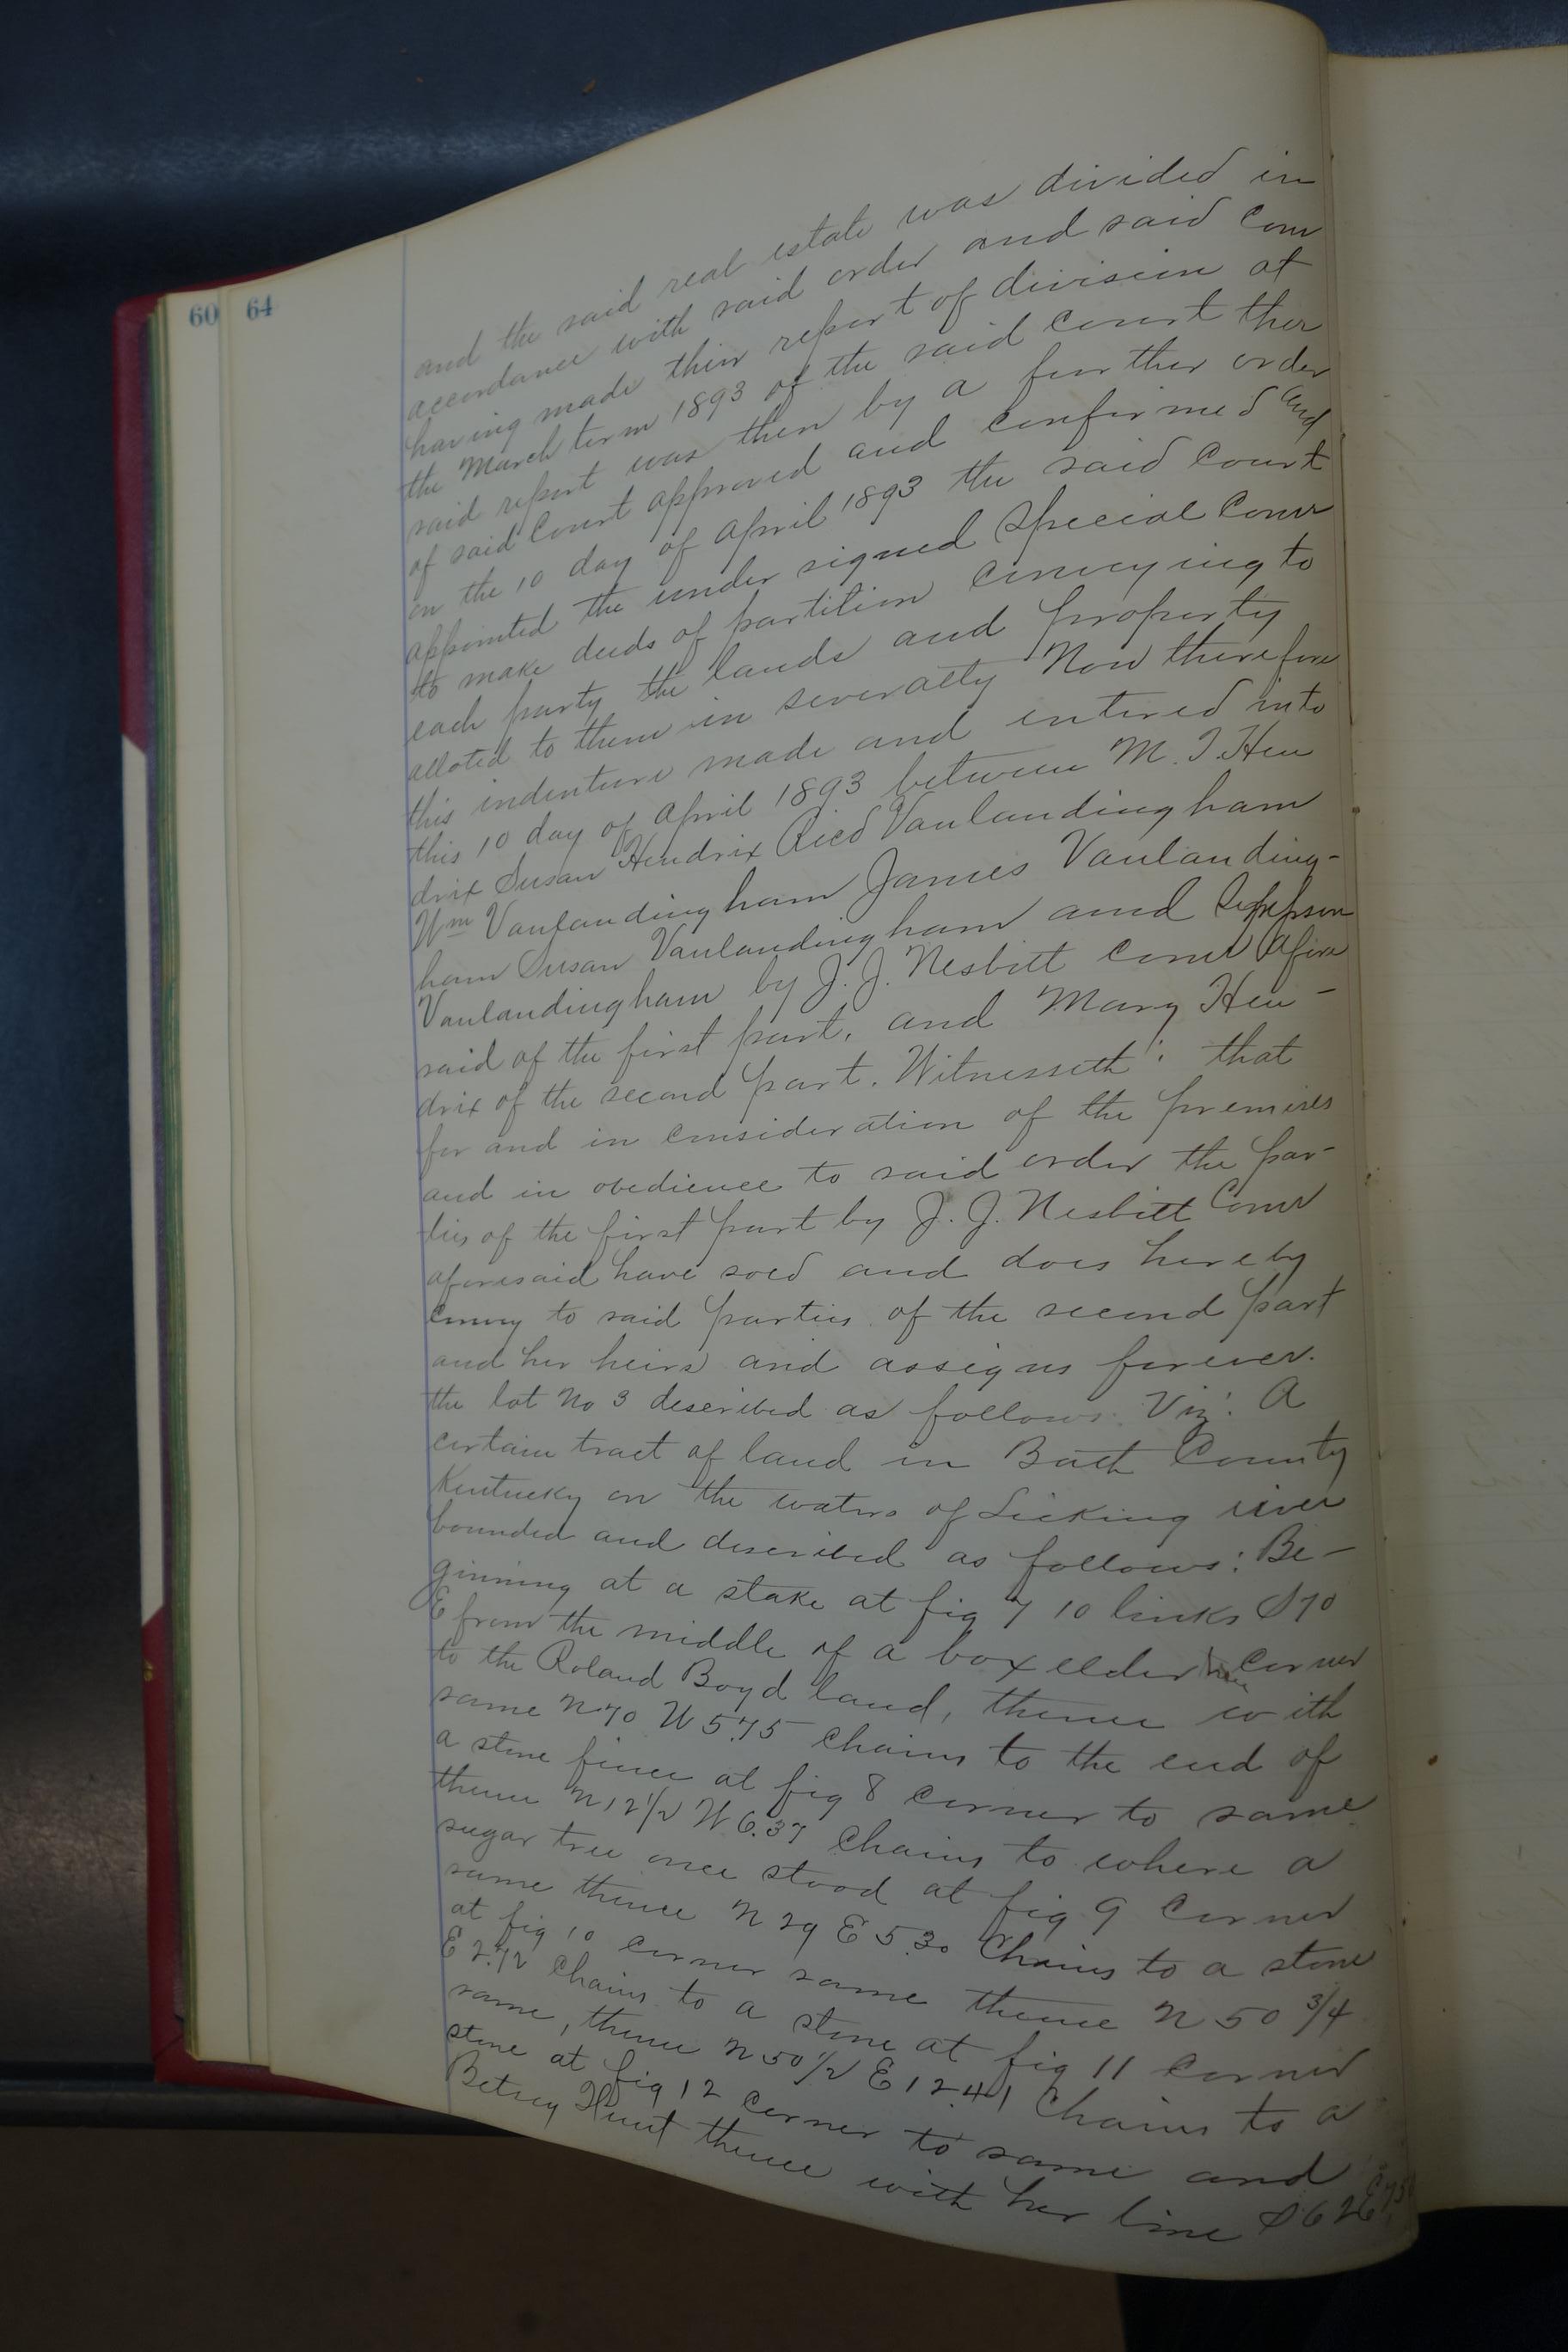 60 64
and the said real estate was divided in
accordance with said order and said Com
having made their report of division at
the March term 1893 of the said Court ther
said report was then by a further order
of said Court approved and confirmed and
on the 10 day of April 1893 the said Court
appointed the under signed Special Comr
to make deeds of partition conveying to
each party the lands and property
alloted to them in severalty Now therefore
this indenture made and entered into
this 10 day of April 1893 between M. T. Hen
drix Susan Hendrix Vanlandingham
Wm Vanlandingham James Vanlanding-
ham Susan Vanlandingham and
Vanlandingham by J. J. Nesbitt Comr afore
said of the first part, and Mary Hen-
drix of the second part. Witnesseth: that
for and in consideration of the premises
and in obedience to said order the par-
ties of the first part by J. J. Nesbitt Comr
aforesaid have sold and does hereby
convey to said parties of the second part
and her heirs and assigns forever.
the lot No 3 described as follows Viz: A
certain tract of land in Bath County
Kentucky on the waters of Licking river
bounded and described as follows: Be-
ginning at a stake at fig 7 10 links S 70
E from the middle of a box elder tree corner
to the Roland Boyd land, thence with
same N 70 W 5.75 chains to the end of
a stone fence at fig 8 corner to same
thence N 12 1/2 W 6.37 chains to where a
sugar tree once stood at fig 9 corner
same thence N 29 E 5.30 Chains to a stone
at fig 10 corner same thence N 50 3/4
E 2.72 chains to a stone at fig 11 corner
same, thence N 50 1/2 E 12.41 chains to a
stone at fig 12 corner to same and
Betsey Hunt thence with her line S 62